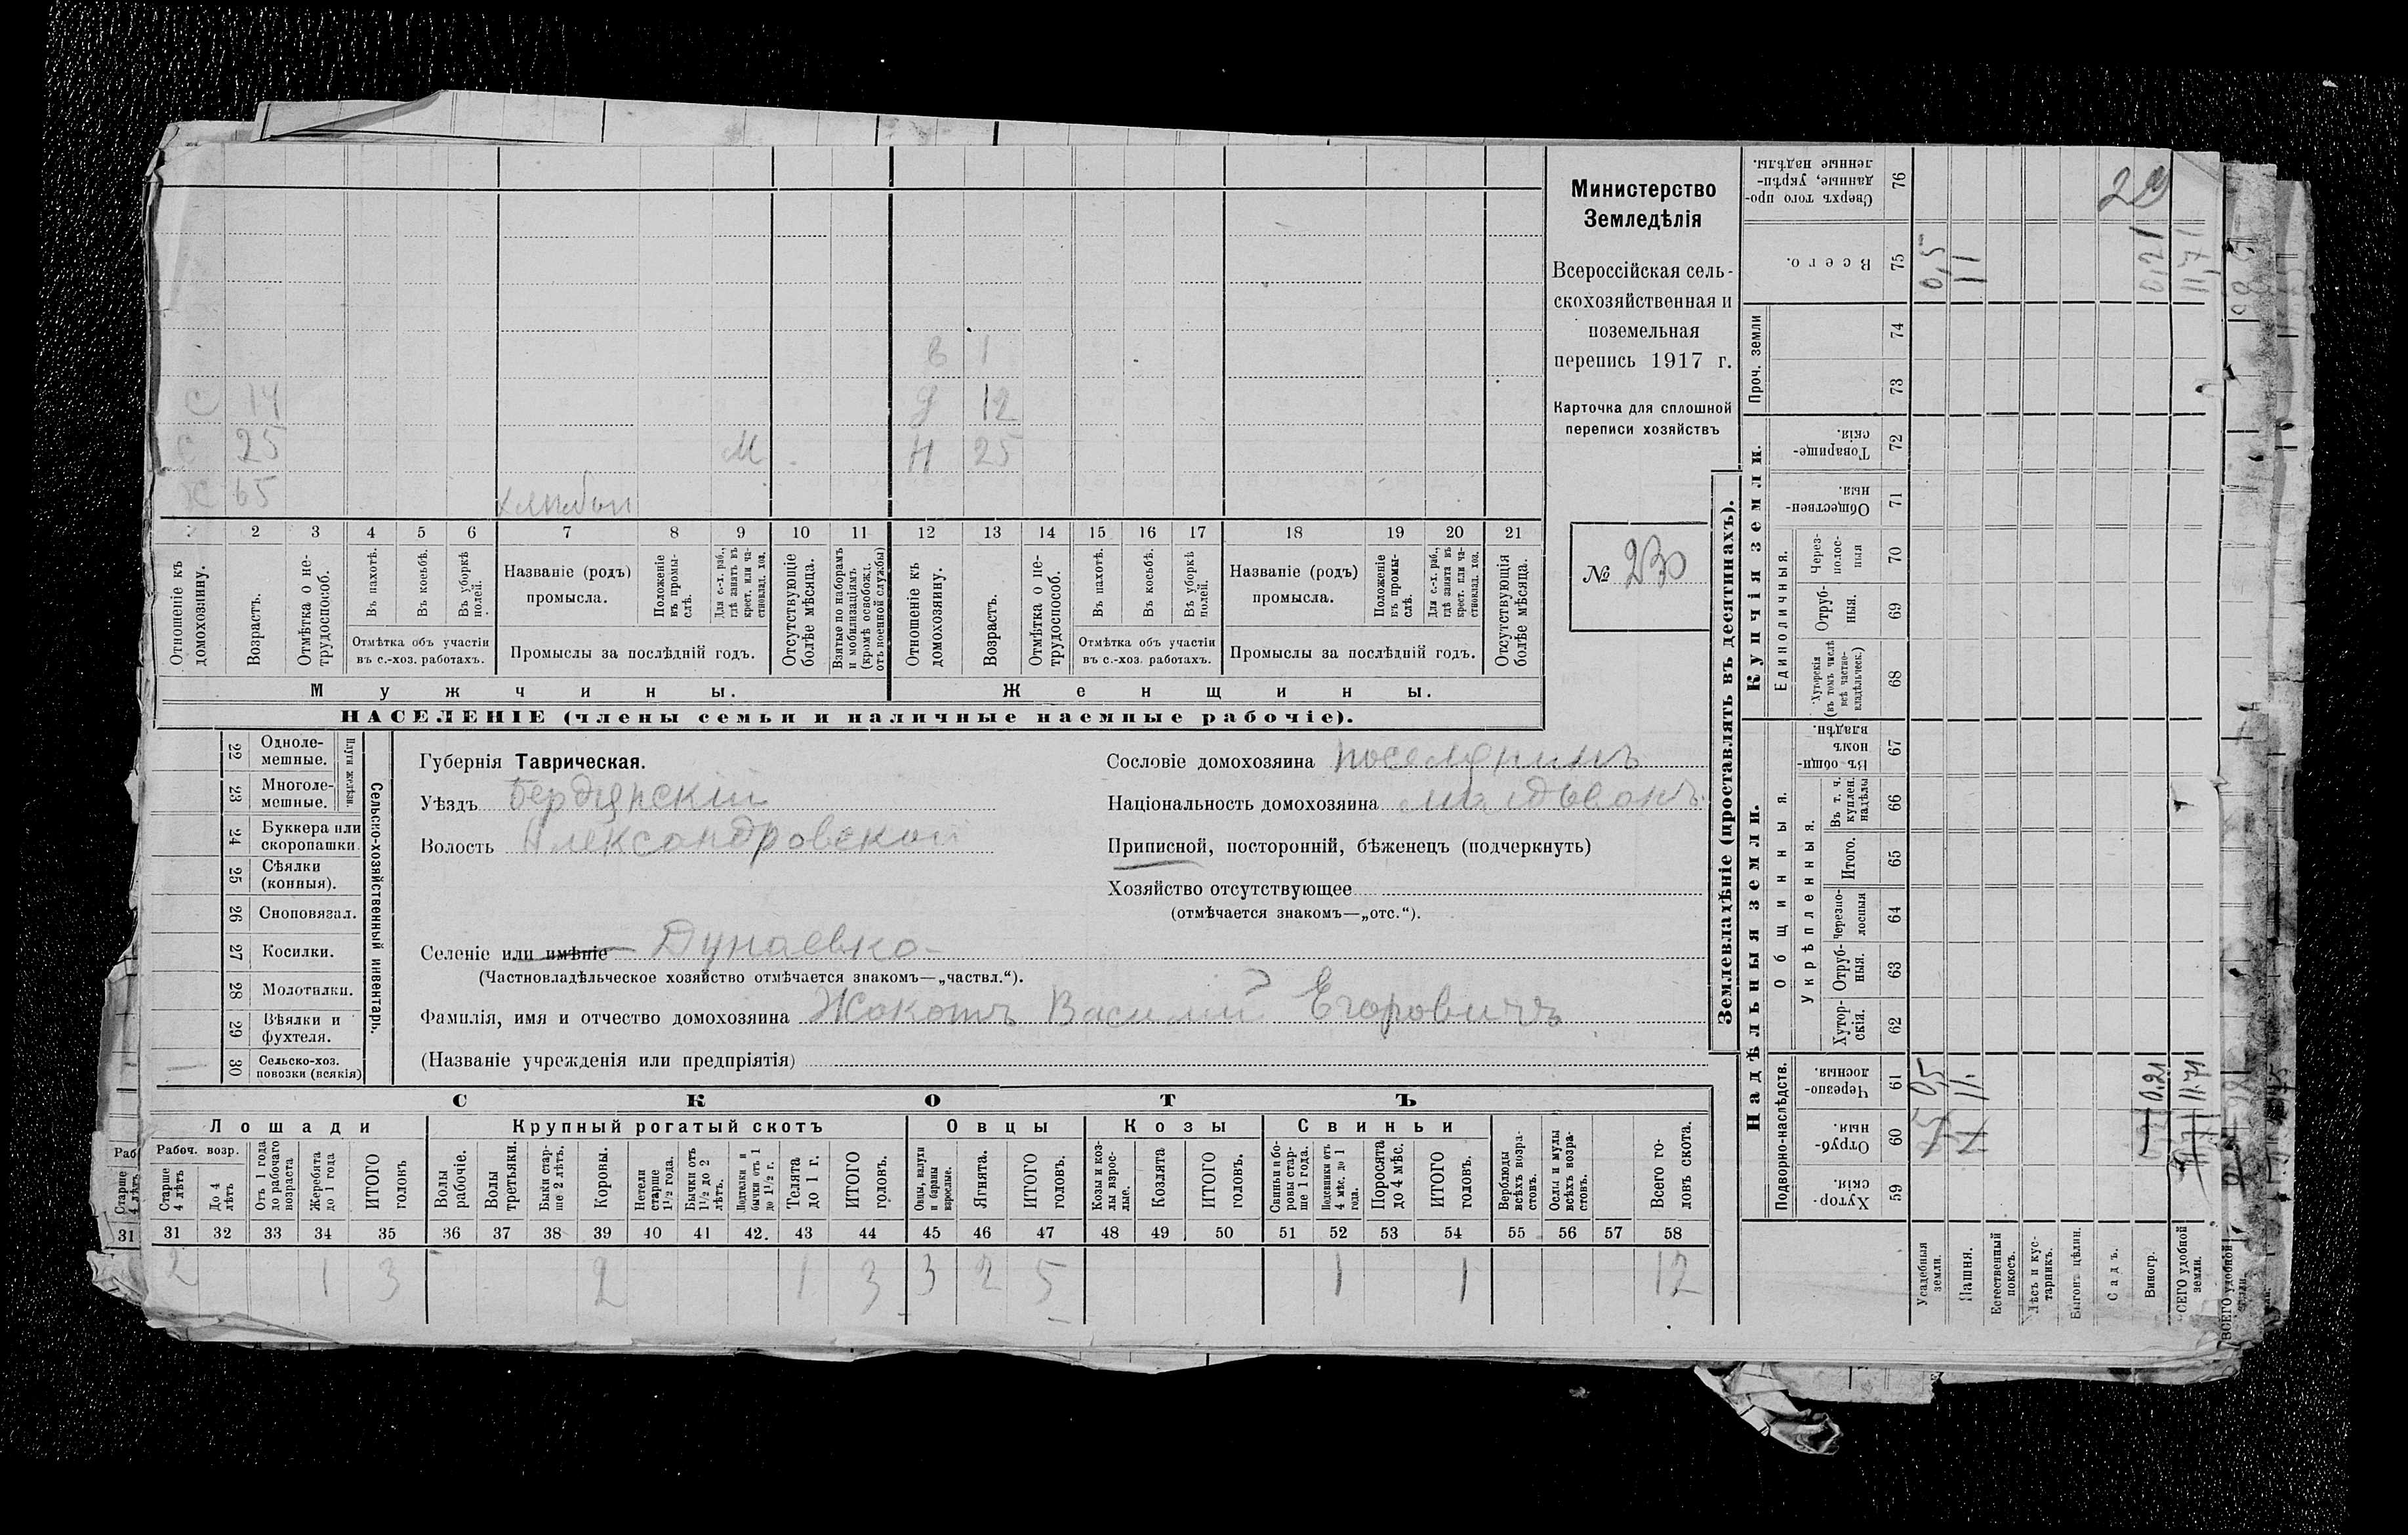 Министерство
Земледѣлія
Всероссійская сель-
скохозяйственная и
поземельная
перепись 1917 г.
Карточка для сплошной
переписи хозяйствъ
№ 230
В 1
С 14 Д 12
С 25 М Н 25
Х 65
2 3 4 5 6 7 8 9 10 11 12 13 14 15 16 17 18 19 20 21
Отношеніе къ домохозяину.
Возрастъ.
Отмѣтка о не-трудоспособ.
Въ пахотѣ.
Въ косьбѣ.
Въ уборкѣ полей.
Отмѣтка объ участіи въ с.-хоз. работахъ.
Названіе (родъ) промысла.
Положеніе въ промыслѣ.
Для с.-х. раб., гдѣ занятъ въ крест. или частновлад. хоз.
Промыслы за послѣдній годъ.
Отсутствующіе болѣе мѣсяца.
Взятые по наборамъ и мобилизаціямъ (кромѣ освобожд. отъ военной службы)
Отношеніе къ домохозяину.
Возрастъ.
Отмѣтка о не-трудоспособ.
Въ пахотѣ.
Въ косьбѣ.
Въ уборкѣ полей.
Отмѣтка объ участіи въ с.-хоз. работахъ.
Названіе (родъ) промысла.
Положеніе въ промыслѣ.
Для с.-х. раб., гдѣ занята въ крест. или частновлад. хоз.
Промыслы за послѣдній годъ.
Отсутствующія болѣе мѣсяца.
Мужчины. Женщины.
НАСЕЛЕНІЕ (члены семьи и наличные наемные рабочіе).
Сельско-хозяйственный инвентарь.
Плуги желѣзн.
22 Одноле-мешные.
23 Многоле-мешные.
24 Буккера или скоропашки.
25 Сѣялки (конныя).
26 Сноповязал.
27 Косилки.
28 Молотилки.
29 Вѣялки и фухтеля.
30 Сельско-хоз. повозки (всякія)
Губернія Таврическая.
Уѣздъ Бердянскій
Волость Александровской
Селеніе или имѣніе Дунаевка
(Частновладѣльческое хозяйство отмѣчается знакомъ—„частвл.“).
Фамилія, имя и отчество домохозяина Жокотъ Василий Егоровичъ
(Названіе учрежденія или предпріятія)
Сословіе домохозяина поселянинъ
Національность домохозяина молдованъ
Приписной, посторонній, бѣженецъ (подчеркнуть)
Хозяйство отсутствующее
(отмѣчается знакомъ—„отс.“).
СКОТЪ
Лошади Крупный рогатый скотъ Овцы Козы Свиньи
Рабоч. возр.
Старше 4 лѣтъ
До 4 лѣтъ
Отъ 1 года до рабочаго возраста
Жеребята до 1 года
ИТОГО головъ
Волы рабочіе.
Волы третьяки.
Быки стар-ше 2 лѣтъ.
Коровы.
Нетели старше 1½ года.
Бычки отъ 1½ до 2 лѣтъ.
Подтелки и бычки отъ 1 до 1½ г.
Телята до 1 г.
ИТОГО головъ.
Овцы, валухи и бараны взрослые.
Ягнята.
ИТОГО головъ.
Козы и коз-лы взрос-лые.
Козлята
ИТОГО головъ.
Свиньи и бо-ровы стар-ше 1 года.
Подсвинки отъ 4 мѣс. до 1 года.
Поросята до 4 мѣс.
ИТОГО головъ.
Верблюды всѣхъ возра-стовъ.
Ослы и мулы всѣхъ возра-стовъ.
Всего го-ловъ скота.
31 31 32 33 34 35 36 37 38 39 40 41 42. 43 44 45 46 47 48 49 50 51 52 53 54 55 56 57 58
2 1 3 2 1 3 3 2 5 1 1 12
Землевладѣніе (проставлять въ десятинахъ).
Надѣльныя земли. Купчія земли.
Подворно-наслѣдств.
Общинныя.
Укрѣпленныя.
Единоличныя.
Проч. земли
59 Хутор-скія.
60 Отруб-ныя.
61 Черезпо-лосныя.
62 Хутор-скія.
63 Отруб-ныя.
64 Черезпо-лосныя
65 Итого.
66 Въ т. ч. куплен. надѣлы
67 Въ общин-номъ владѣн.
68 Хуторскія (въ томъ числѣ всѣ частно-владѣльческ.)
69 Отруб-ныя.
70 Через-полос-ныя
71 Обществен-ныя.
72 Товарище-скія.
73
74
75 Всего.
76 Сверхъ того про-данные, укрѣп-ленные надѣлы.
Усадебныя земли. 0,5 0,5
Пашня. 11. 11
Естественный покосъ.
Лѣсъ и кус-тарникъ.
Выгонъ цѣлин.
Садъ.
Виногр. 0,21 0,21
ВСЕГО удобной земли. 11,71 11,71
29